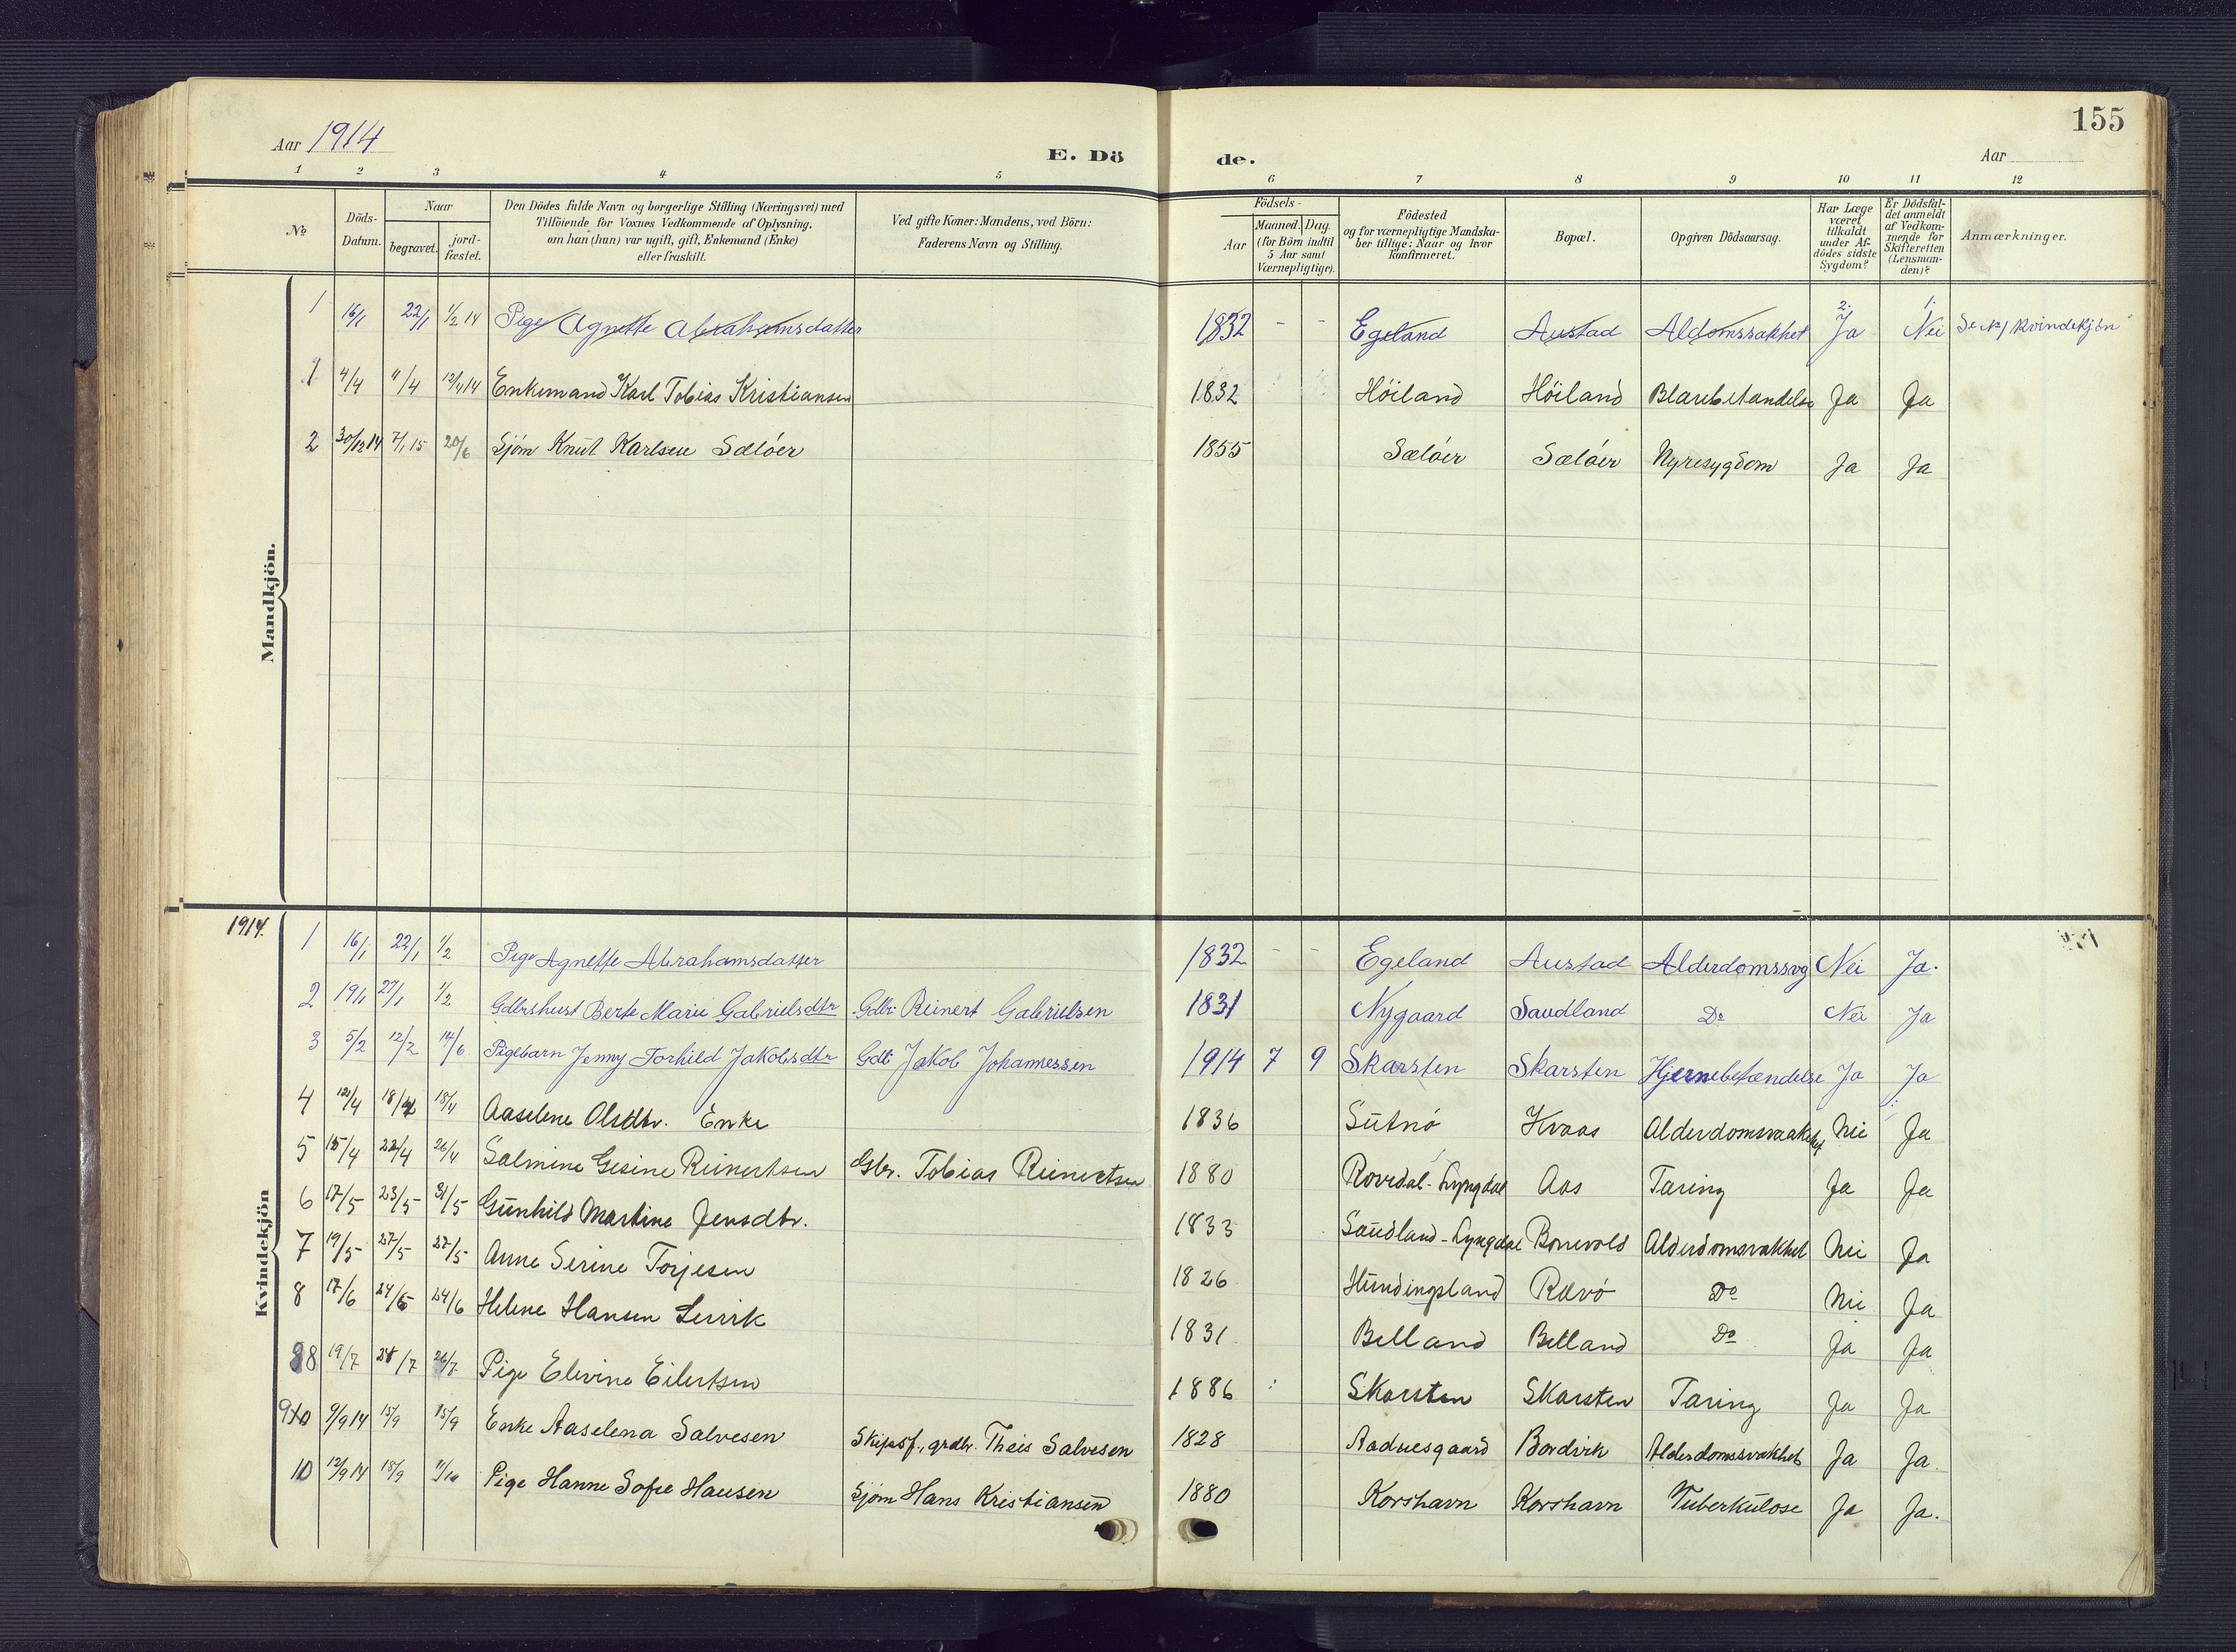 155
Aar 1914
E. Dö de.
Aar
1 2 3 4 5 6 7 8 9 10 11 12
No
Döds-Datum.
Naar
begravet.
jord-fæstet.
Den Dödes fulde Navn og borgerlige Stilling (Næringsvei) med
Tilföiende for Voxnes Vedkommende af Oplysning,
om han (hun) var ugift, gift, Enkemand (Enke)
eller fraskilt.
Ved gifte Koner: Mandens, ved Börn:
Faderens Navn og Stilling.
Födsels-
Aar
Maaned. Dag.
(for Börn indtil
5 Aar samt
Værnepligtige).
Födested
og for værnepligtige Mandska-
ber tillige: Naar og hvor
konfirmeret.
Bopæl.
Opgiven Dödsaarsag.
Har Læge
været
tilkaldt
under Af-
dödes sidste
Sygdom?
Er Dödsfal-
det anmeldt
af Vedkom-
mende for
Skifteretten
(Lensman-
den)?
Anmærkninger.
Mandkjön.
1 16/1 22/1 1/2 14 Pige Agnette Abrahamsdatter 1832 - - Egeland Austad Aldomssvakhet 2. Ja 1. Nei Se No 1 Kvindekjön
1 4/4 11/4 12/4 14 Enkemand Karl Tobias Kristiansen 1832 Höiland Höiland Ja Ja
2 30/12 14 7/1 15 20/6 Sjöm Knut Karlsen Sælöer 1855 Sælöer Sælöer Nyresygdom Ja Ja
1914.
Kvindekjön
1 16/1 22/1 1/2 Pige Agnette Abrahamsdatter 1832 - - Egeland Austad Alderdomssvg Nei Ja.
2 19/1 27/1 1/2 Gdbrshust Berte Marie Gabrielsdtr Gdbr Reinert Gabrielsen 1831 Nygaard Saudland Do Nei Ja
3 5/2 12/2 14/6 Pigebarn Jenny Torhild Jakobsdtr Gdb Jakob Johannessen 1914 7 9 Skarsten Skarsten Hjernebetændelse Ja Ja
4 12/4 18/4 18/4 Aaselene Olsdtr. Enke 1836 Sütnö Kvaas Alderdomsvakhet Nei Ja
5 15/4 22/4 26/4 Salmine Gesine Reinertsen Gbr. Tobias Reinertsen 1880 Rovedal-Lyngdal Aas Tæring Ja Ja
6 17/5 23/5 31/5 Gunhild Martine Jensdtr. 1833 Saudland-Lyngdal Bonevold Alderdomsvakhet Nei Ja
7 19/5 27/5 27/5 Anne Serine Torjesen 1826 Hundingsland Rævö Do Nei Ja
8 17/6 24/6 24/6 Helene Hansen 1831 Belland Belland Do Ja Ja
8 19/7 /7 26/7 Pige Elevine Eilertsen 1886 Skarsten Skarsten Tæring Ja Ja
9 9/9 14 15/9 15/9 Enke Aaselena Salvesen Skipsf., grdbr. Theis Salvesen 1828 Aadnesgaard Bordvik Alderdomssvakhet Ja Ja.
10 12/9 14 18/9 11/10 Pige Hanne Sofie Hansen Sjöm Hans Kristiansen 1880 Korshavn Korshavn Tuberkulose Ja Ja.